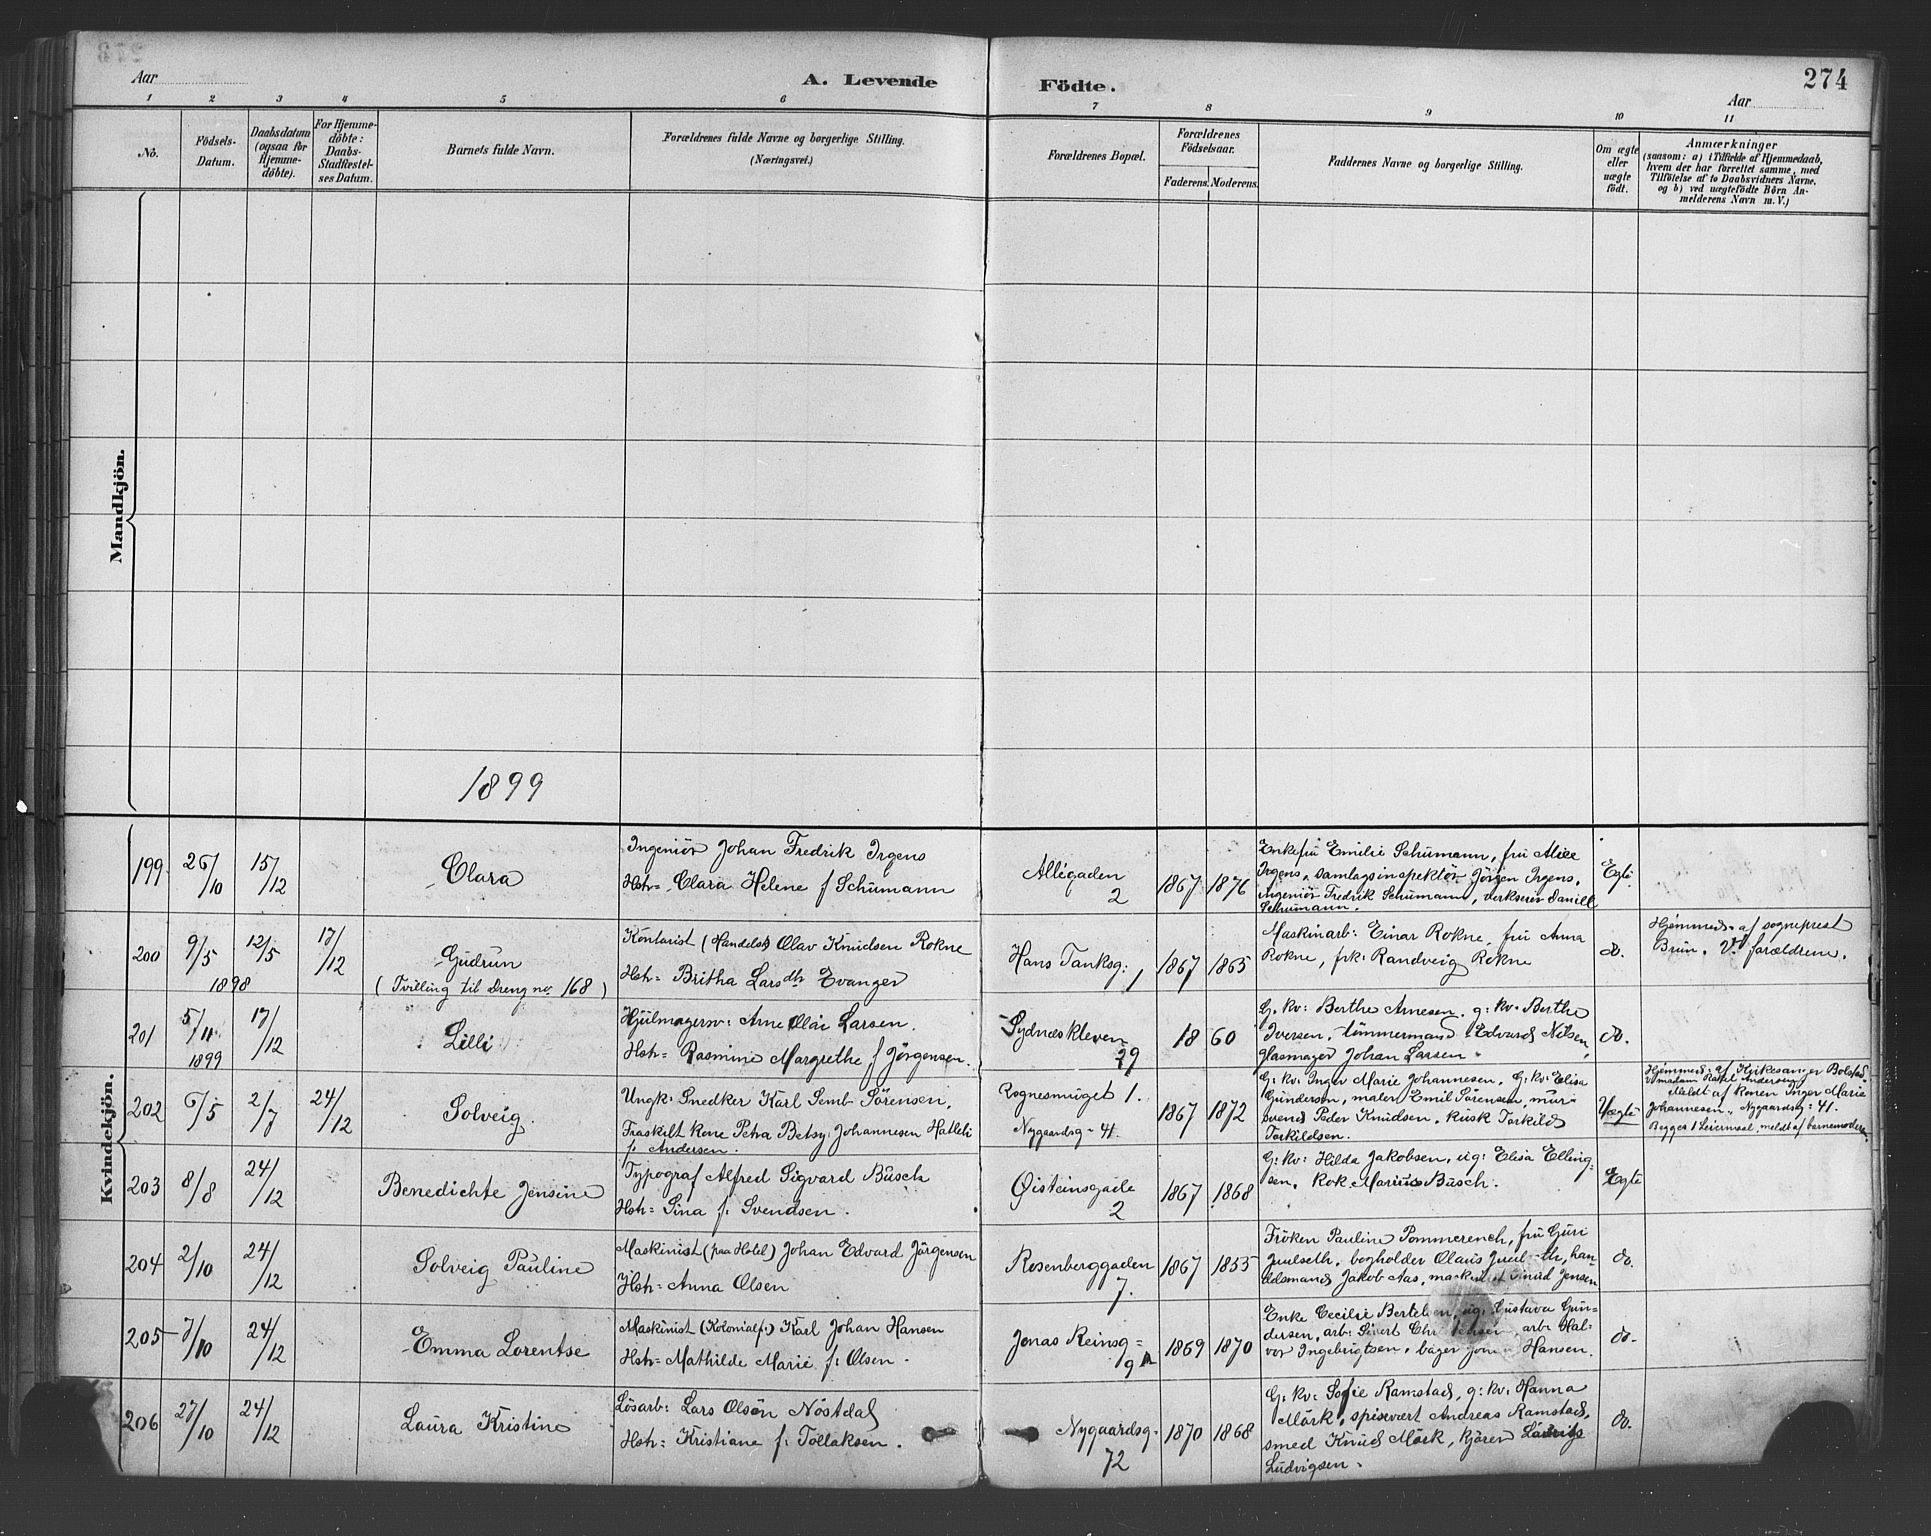 Aar
A. Levende
Födte.
Aar
274
1 2 3 4 5 6 7 8 9 10 11
No.
Födsels-
Datum.
Daabsdatum
(ogsaa for
Hjemme-
döbte).
For Hjemme-
döbte:
Daabs-
Stadfæstel-
ses Datum.
Barnets fulde Navn.
Forældrenes fulde Navne og borgerlige Stilling.
(Næringsvei.)
Forældrenes Bopæl.
Forældrenes
Födselsaar.
Faderens. Moderens.
Faddernes Navne og borgerlige Stilling.
Om ægte
eller
uægte
födt.
Anmærkninger
(saasom: a) i Tilfælde af Hjemmedaab,
hvem der har forrettet samme, med
Tilföielse af to Daabsvidners Navne,
og b) ved uægtefödte Börn An-
melderens Navn m. V.)
Mandkjön.
1899
Kvindekjön.
199 26/10 15/12
Clara
Ingeniör Johan Fredrik Irgens
Hstr= Clara Helene f Schumann
Allégaden
2
1867 1876
Enkefru Emilie Schumann, fru Alice
Irgens, samlagsinspektör Jörgen Irgens,
ingeniör Fredrik Schumann, verkseier Daniel
Schumann.
Egte.
200 9/5 12/5 17/12
1898
Gudrun
(Tvilling til Dreng no. 168)
Kontorist (Handelsk) Olav Knudsen Rokne
Hstr= Britha Larsdtr Evanger
Hans Tanksg: 1
1867 1865
Maskinarb: Einar Rokne, fru Anna
Rokne, frk: Randveig Rokne
do.
Hjemmed. af sogneprest
Brun. V: forældrene.
201 5/11 17/12
1899
Lilli
Hjulmagersv: Arne Olai Larsen.
Hstr= Rasmine Margrethe f Jörgensen.
Sydneskleven
29
18 60
G: kv: Berthe Arnesen. g: kv: Berthe
Iversen, tömmermand Edvard Nilsen,
glasmager Johan Larsen.
do.
202 6/5 2/7 24/12
Solveig.
Ungk: Snedker Karl Semb Sörensen,
Fraskilt kone Petra Betsy Johannesen Hatleli
f. Andersen.
Rognesmuget 1.
Nygaardsg= 41.
1867 1872
G: kv: Inger Marie Johannesen, G: kv: Elisa
Gundersen, maler Emil Sörensen, mur
svend Peder Knudsen, kusk Torkild
Torkildsen.
Uægte
Hjemmed: af Kirkesanger Bolstad.
Rakel Andersen
Meldt af konen Inger Marie
Johannesen, Nygaardsg= 41.
Begges 1 Leiermaal, meldt af barnemoderen.
203 8/8 24/12
Benedichte Jensine
Typograf Alfred Sigvard Busch
Hstr= Sina f: Svendsen.
Øisteinsgade
2
1867 1868
G: kv: Hilda Jakobsen, ug: Elisa Elling-
sen. Kok Marius Busch.
Egte
204 2/10 24/12
Solveig Pauline
Maskinist (paa Hotel) Johan Edvard Jörgensen
Hstr= Anna Olsen
Rosenberggaden
7.
1867 1855
Fröken Pauline Pommerench, fru Guri
Juulseth, bogholder Olaus Juulseth, han-
delsmand Jakob Aas, maskinist Knud Jensen
do.
205 7/10 24/12
Emma Lorentse
Maskinist (Kolonialf:) Karl Johan Hansen
Hstr= Mathilde Marie f: Olsen.
Jonas Reinsg=
9 A
1869 1870
Enke Cecilie Bertelsen, ug: Gustava Gun-
dersen, arb: Sivert Christensen, arb: Hal-
vor Ingebrigtsen, bager Hansen.
do.
206 27/10 24/12
Laura Kristine
Lösarb: Lars Olsen Nöstdal
Hstr= Kristiane f: Tollaksen.
Nygaardsg.
72
1870 1868
G: kv: Sofie Ramstad, g: kv: Hanna
Mörk, spisevært Andreas Ramstad,
smed Knud Mörk, kjörer Laurits
Ludvigsen.
do.